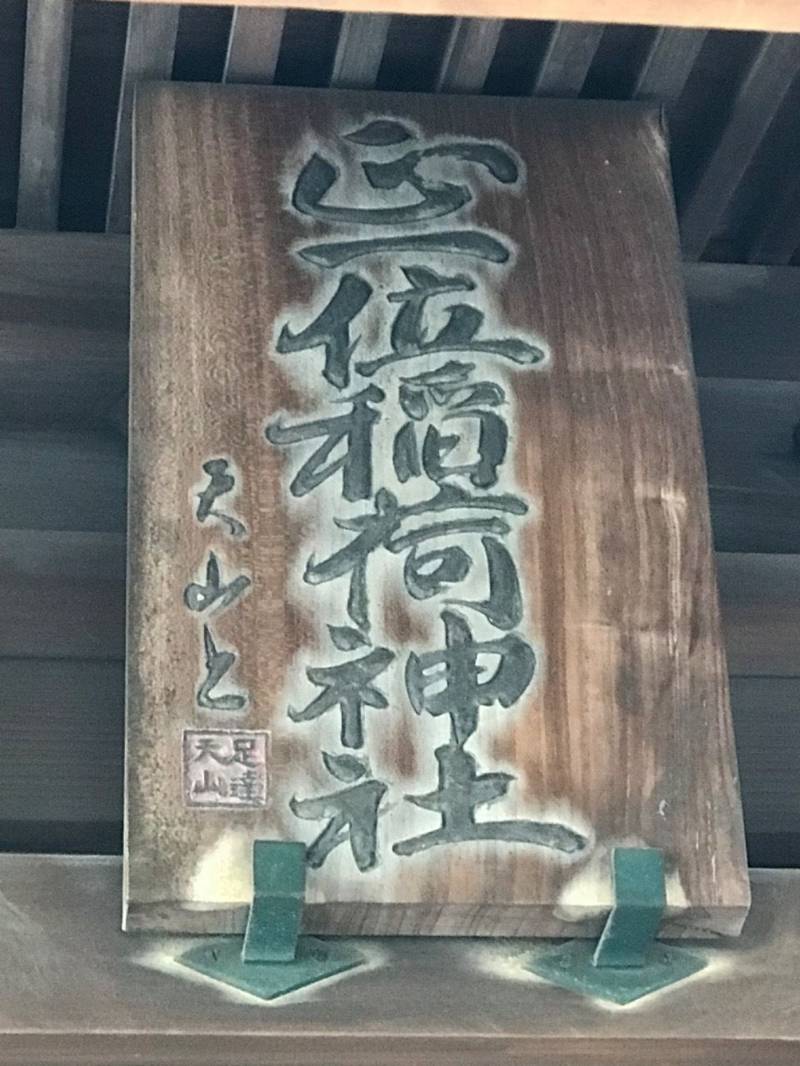 正一位稲荷神社
天山上
足達
天山